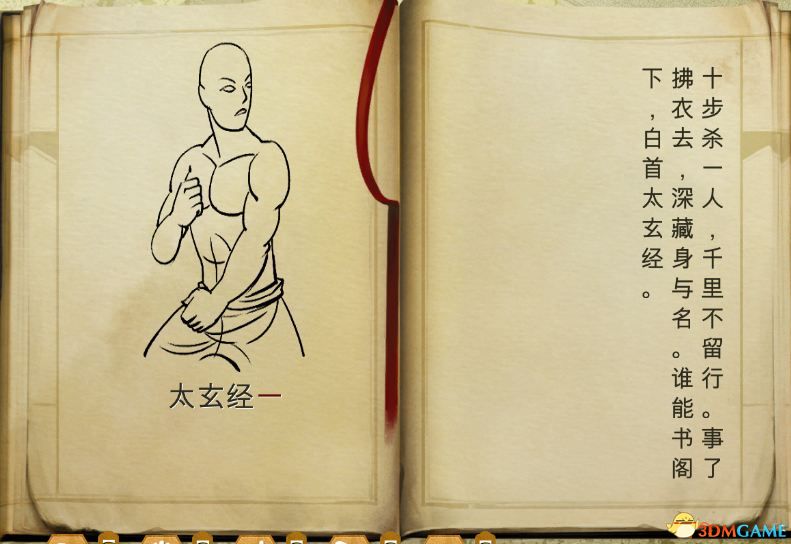 太玄经一
十步杀一人，千里不留行。事了
拂衣去，深藏身与名。谁能书阁
下，白首太玄经。
3DMGAME